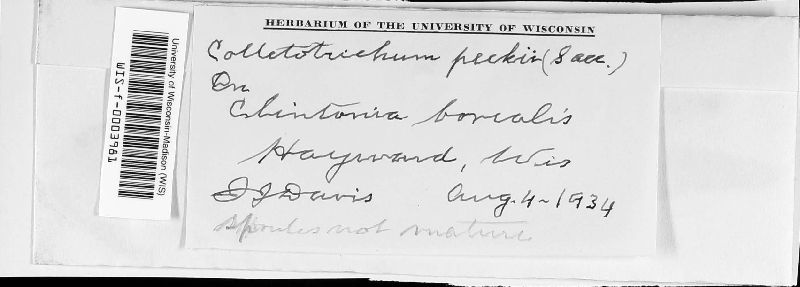 HERBARIUM OF THE UNIVERSITY OF WISCONSIN
Colletotrichum peckii (Sacc.)
On
Clintonia borealis
Hayward, Wis
J J Davis Aug. 4-1934
spoules not mature
University of Wisconsin-Madison (WIS)
WIS-f-0003981